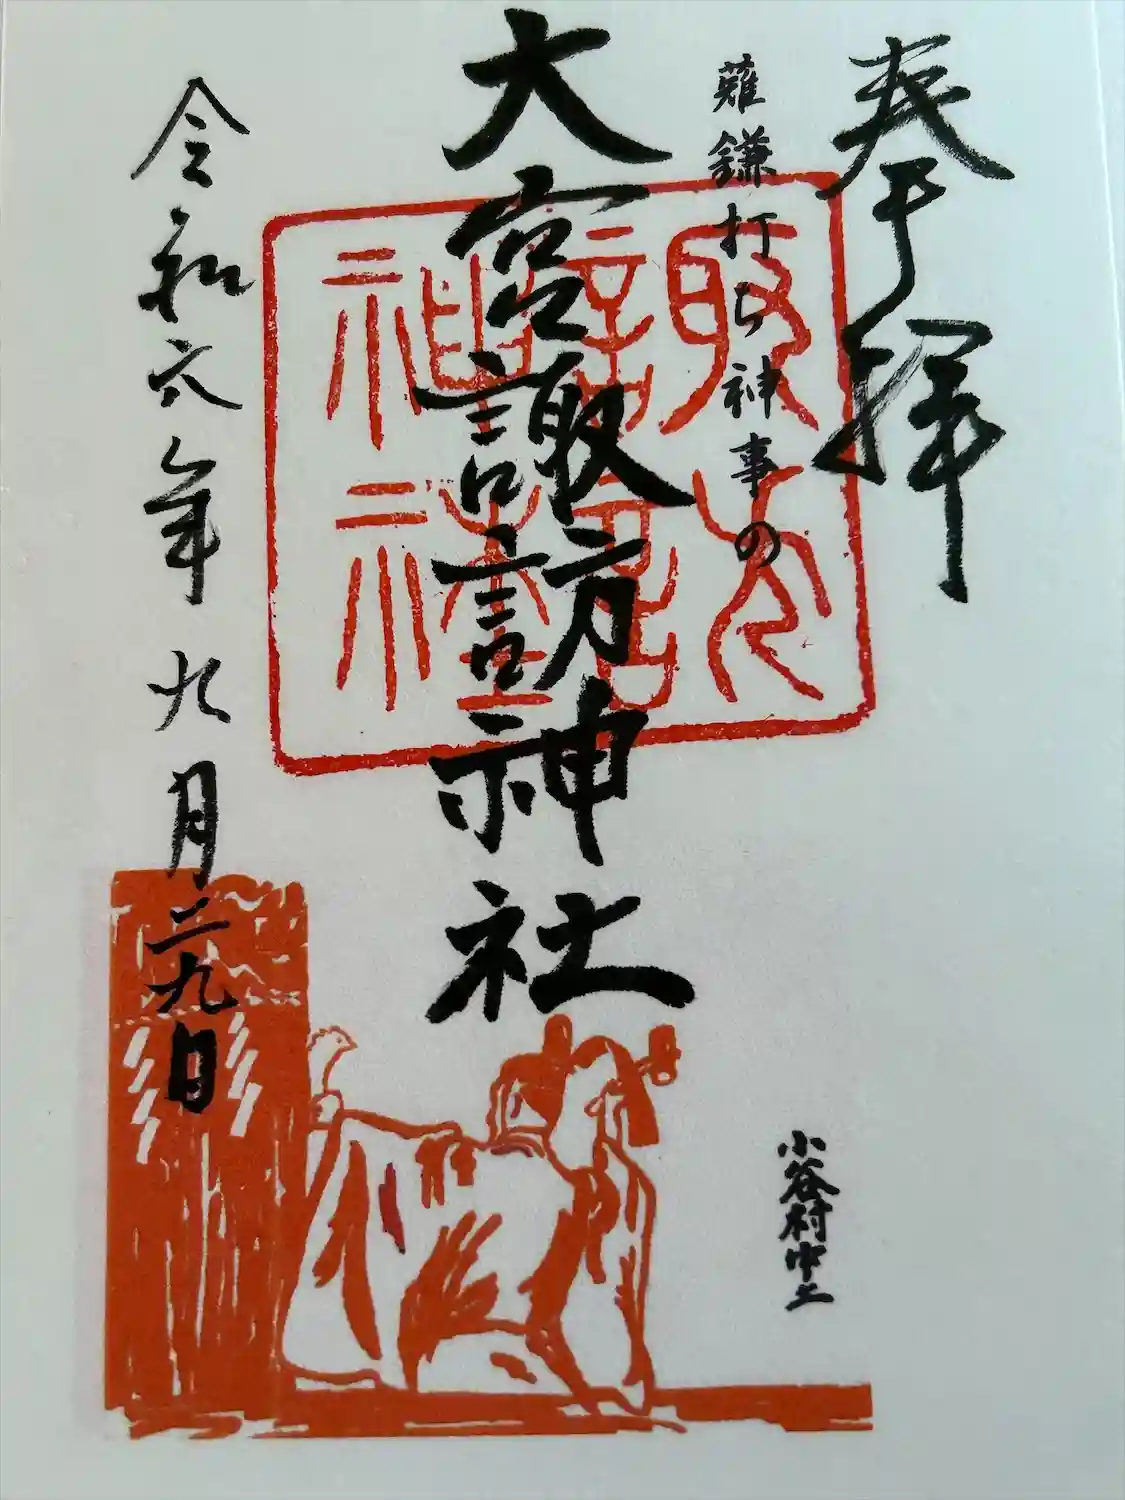 奉拝
薙鎌打ち神事の
大宮諏訪神社
小谷村中土
令和六年九月二九日